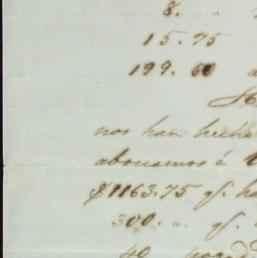 8. "
15.75
199.60 a
nos han hecho
abonamos á
$1163.75 gf. ha
300. " gf.
40